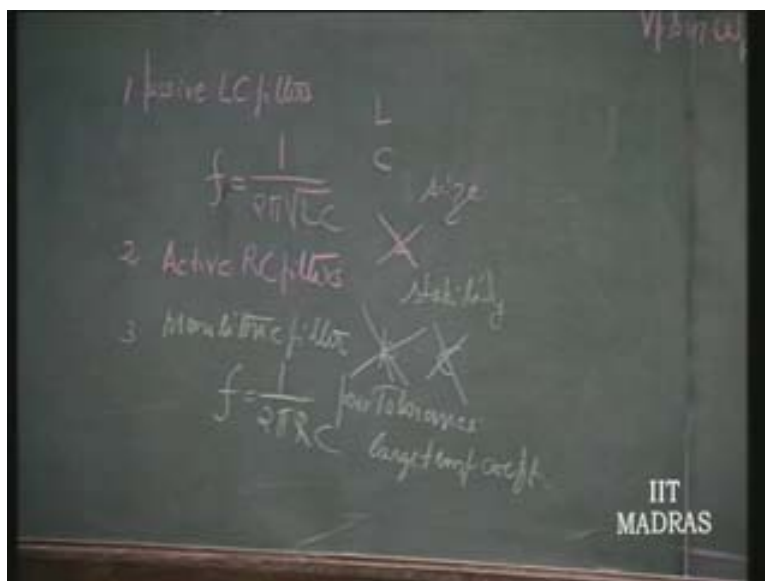 Vp Sin ωp
1 passive LC filters
L
C
f = 1 / 2π√LC
size
2 Active RC filters
stability
3 Monolithic filter
f = 1 / 2πRC
poor Tolerances
large temp coeff.
IIT
MADRAS